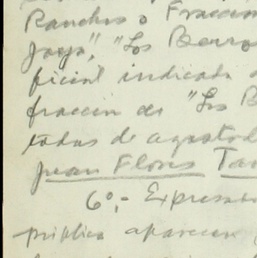 Ranchos o Fraccion
Joya", "Los Berro
ficial indicada
fraccion de "Los B
tadas de agostad
Juan Flores Ta
6º.- Expresa
publica aparecen